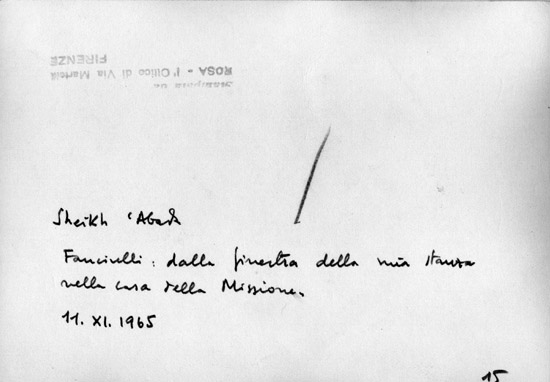 ROSA - l'Ottico di Via Martelli
FIRENZE
Sheikh 'Abada
Fanciulli: dalla finestra della mia stanza
nella casa della Missione.
11. XI. 1965
15